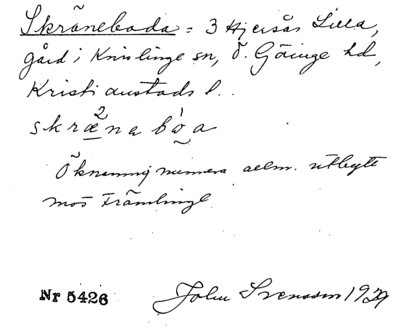 Skråneboda = 3 Hjersås Lilla,
gård i Knislinge sn, Ö. Göinge hd,
Kristianstads l.
skræ̱²na bò̯a
Öknamnet numera allm. utbytt
mos Främlinge
Nr 5426 John Svensson 1929